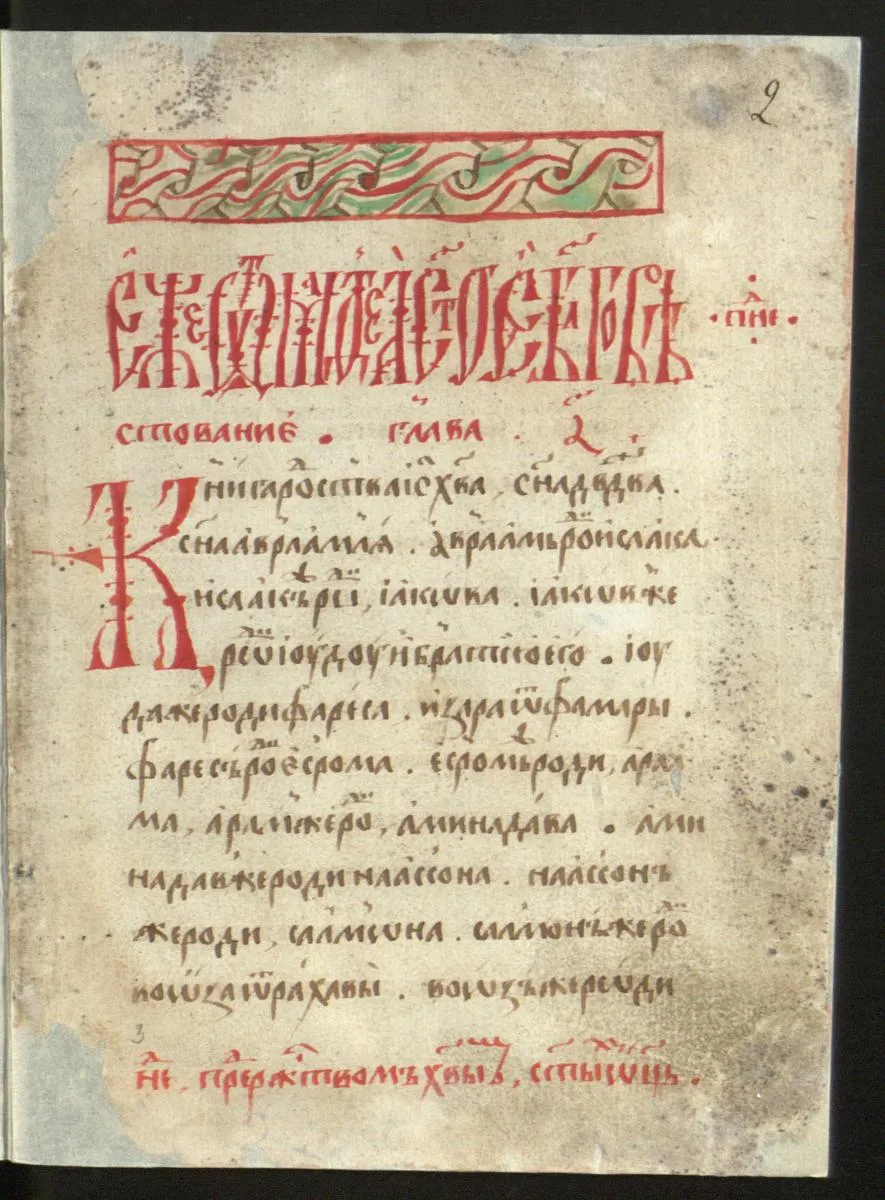 2
ЕЖЕ Ѿ МАТѲЕѦ СТ҃ОЕ БЛ҃ГОВѢ
· пн҃е ·
ствованиє . глава . а҃ .
Книга родства і҃с х҃ва , с҃на дв҃два .
с҃на авраамлѧ . авраамъ роⷣ исаака .
исаакъ роⷣ , іакѡва . іакѡв же
рѡⷣ іоудоу и братию єго . іоу
да же роди фареса . и зара ѿ фамары .
фаресъ роⷣ єсрома . єсромъ роди , ара
ма , арам же роⷣ , аминадава . ами
надав же роди наассона . наассонъ
же роди , салмѡна . салмонъ же роⷣ
воѡза ѿ рахавы . воѡзъ же рѡди
3
н҃е , преⷣ рⷤтвомъ хв҃ымъ , ст҃ыхъ ѡц҃ъ .